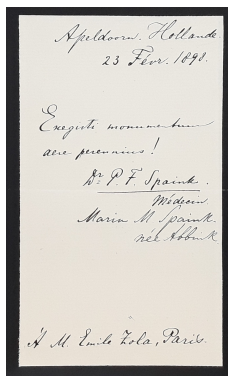 Apeldoorn. Hollande
23 Févr. 1898.
Exegisti monumentum
aere perennius!
Dr. P. F. Spaink.
Médecin.
Maria M Spaink.
née Abbink
À M. Emile Zola, Paris.